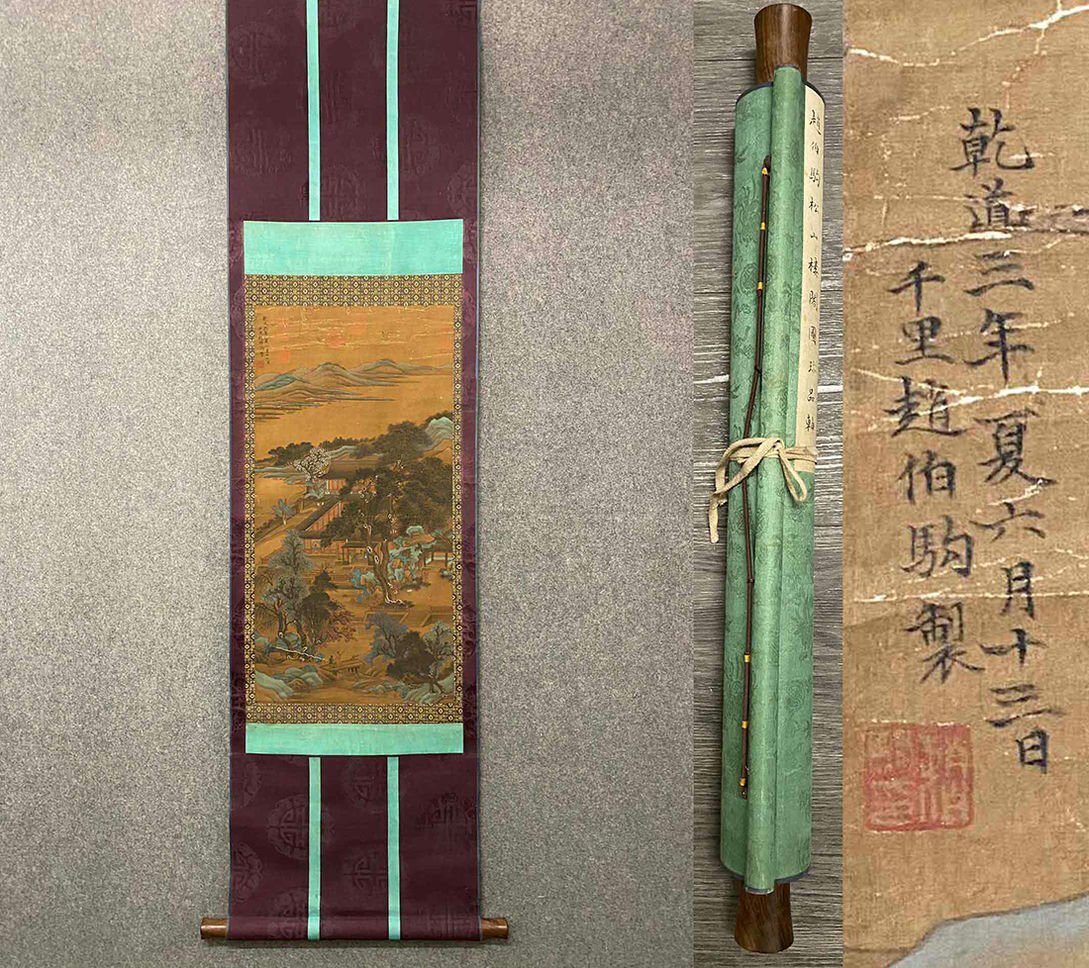 趙伯駒松山樓閣圖珍品軸
乾道三年夏六月十三日
千里趙伯駒製